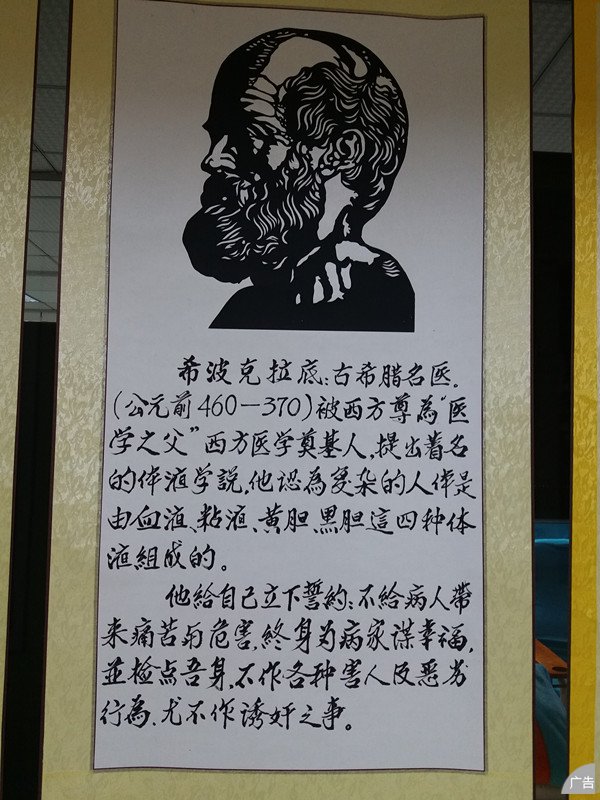 希波克拉底:古希腊名医.
(公元前460—370)被西方尊為“医
学之父”西方医学奠基人,提出着名
的体液学説,他認為复杂的人体是
由血液、粘液、黄胆、黑胆這四种体
液組成的。
他給自己立下誓約:不給病人帶
来痛苦与危害,終身为病家謀幸福,
並检点吾身,不作各种害人及恶劣
行為、尤不作诱奸之事。
广告